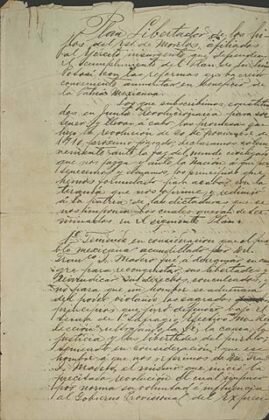 Plan Libertador de los hi-
jos del Estado de Morelos, afiliados
al Ejército insurgente que defienden
el cumplimiento del Plan de San Luis
Potosí con las reformas que ha creído
conveniente aumentar en beneficio de
la Patria Mexicana.
Los que subscribimos, constitui-
dos en Junta Revolucionaria para sos-
tener y llevar a cabo las promesas que
hizo la revolución de 20 de Noviembre de
1910 próximo pasado, declaramos solem-
nemente ante la faz del mundo
que nos juzga y ante la Nación a que per-
tenecemos y amamos, los principios que
hemos formulado para acabar con la
tiranía que nos oprime y redimir
a la patria de las dictaduras que se
nos imponen las cuales quedan deter-
minadas en el siguiente Plan:
1º Teniendo en consideración que el pueblo
mexicano acaudillado por Don
Franco I. Madero fué a derramar su san-
gre para reconquistar sus libertades y
reivindicar sus derechos conculcados, y
no para que un hombre se adueñara
del poder violando los sagrados
principios que juró defender bajo el
lema de "Sufragio Efectivo" "No Ree-
lección" ultrajando la fé, la causa, la
justicia y las libertades del pueblo;
teniendo en consideración: que ese
hombre a que nos referimos es Don Franco
I. Madero, el mismo que inició la
precitada revolución el cual impuso
por norma su voluntad e influencia
al Gobierno Provisional del Ex presi-